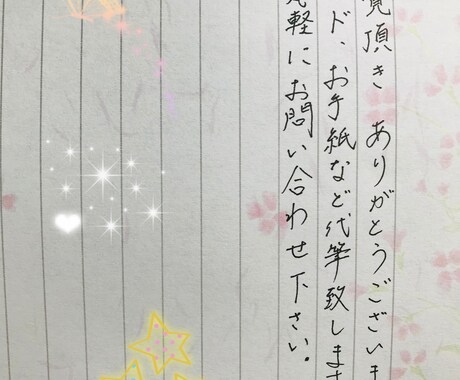 覧頂き ありがとうございま
ド、お手紙など代筆致します
軽にお問い合わせ下さい。